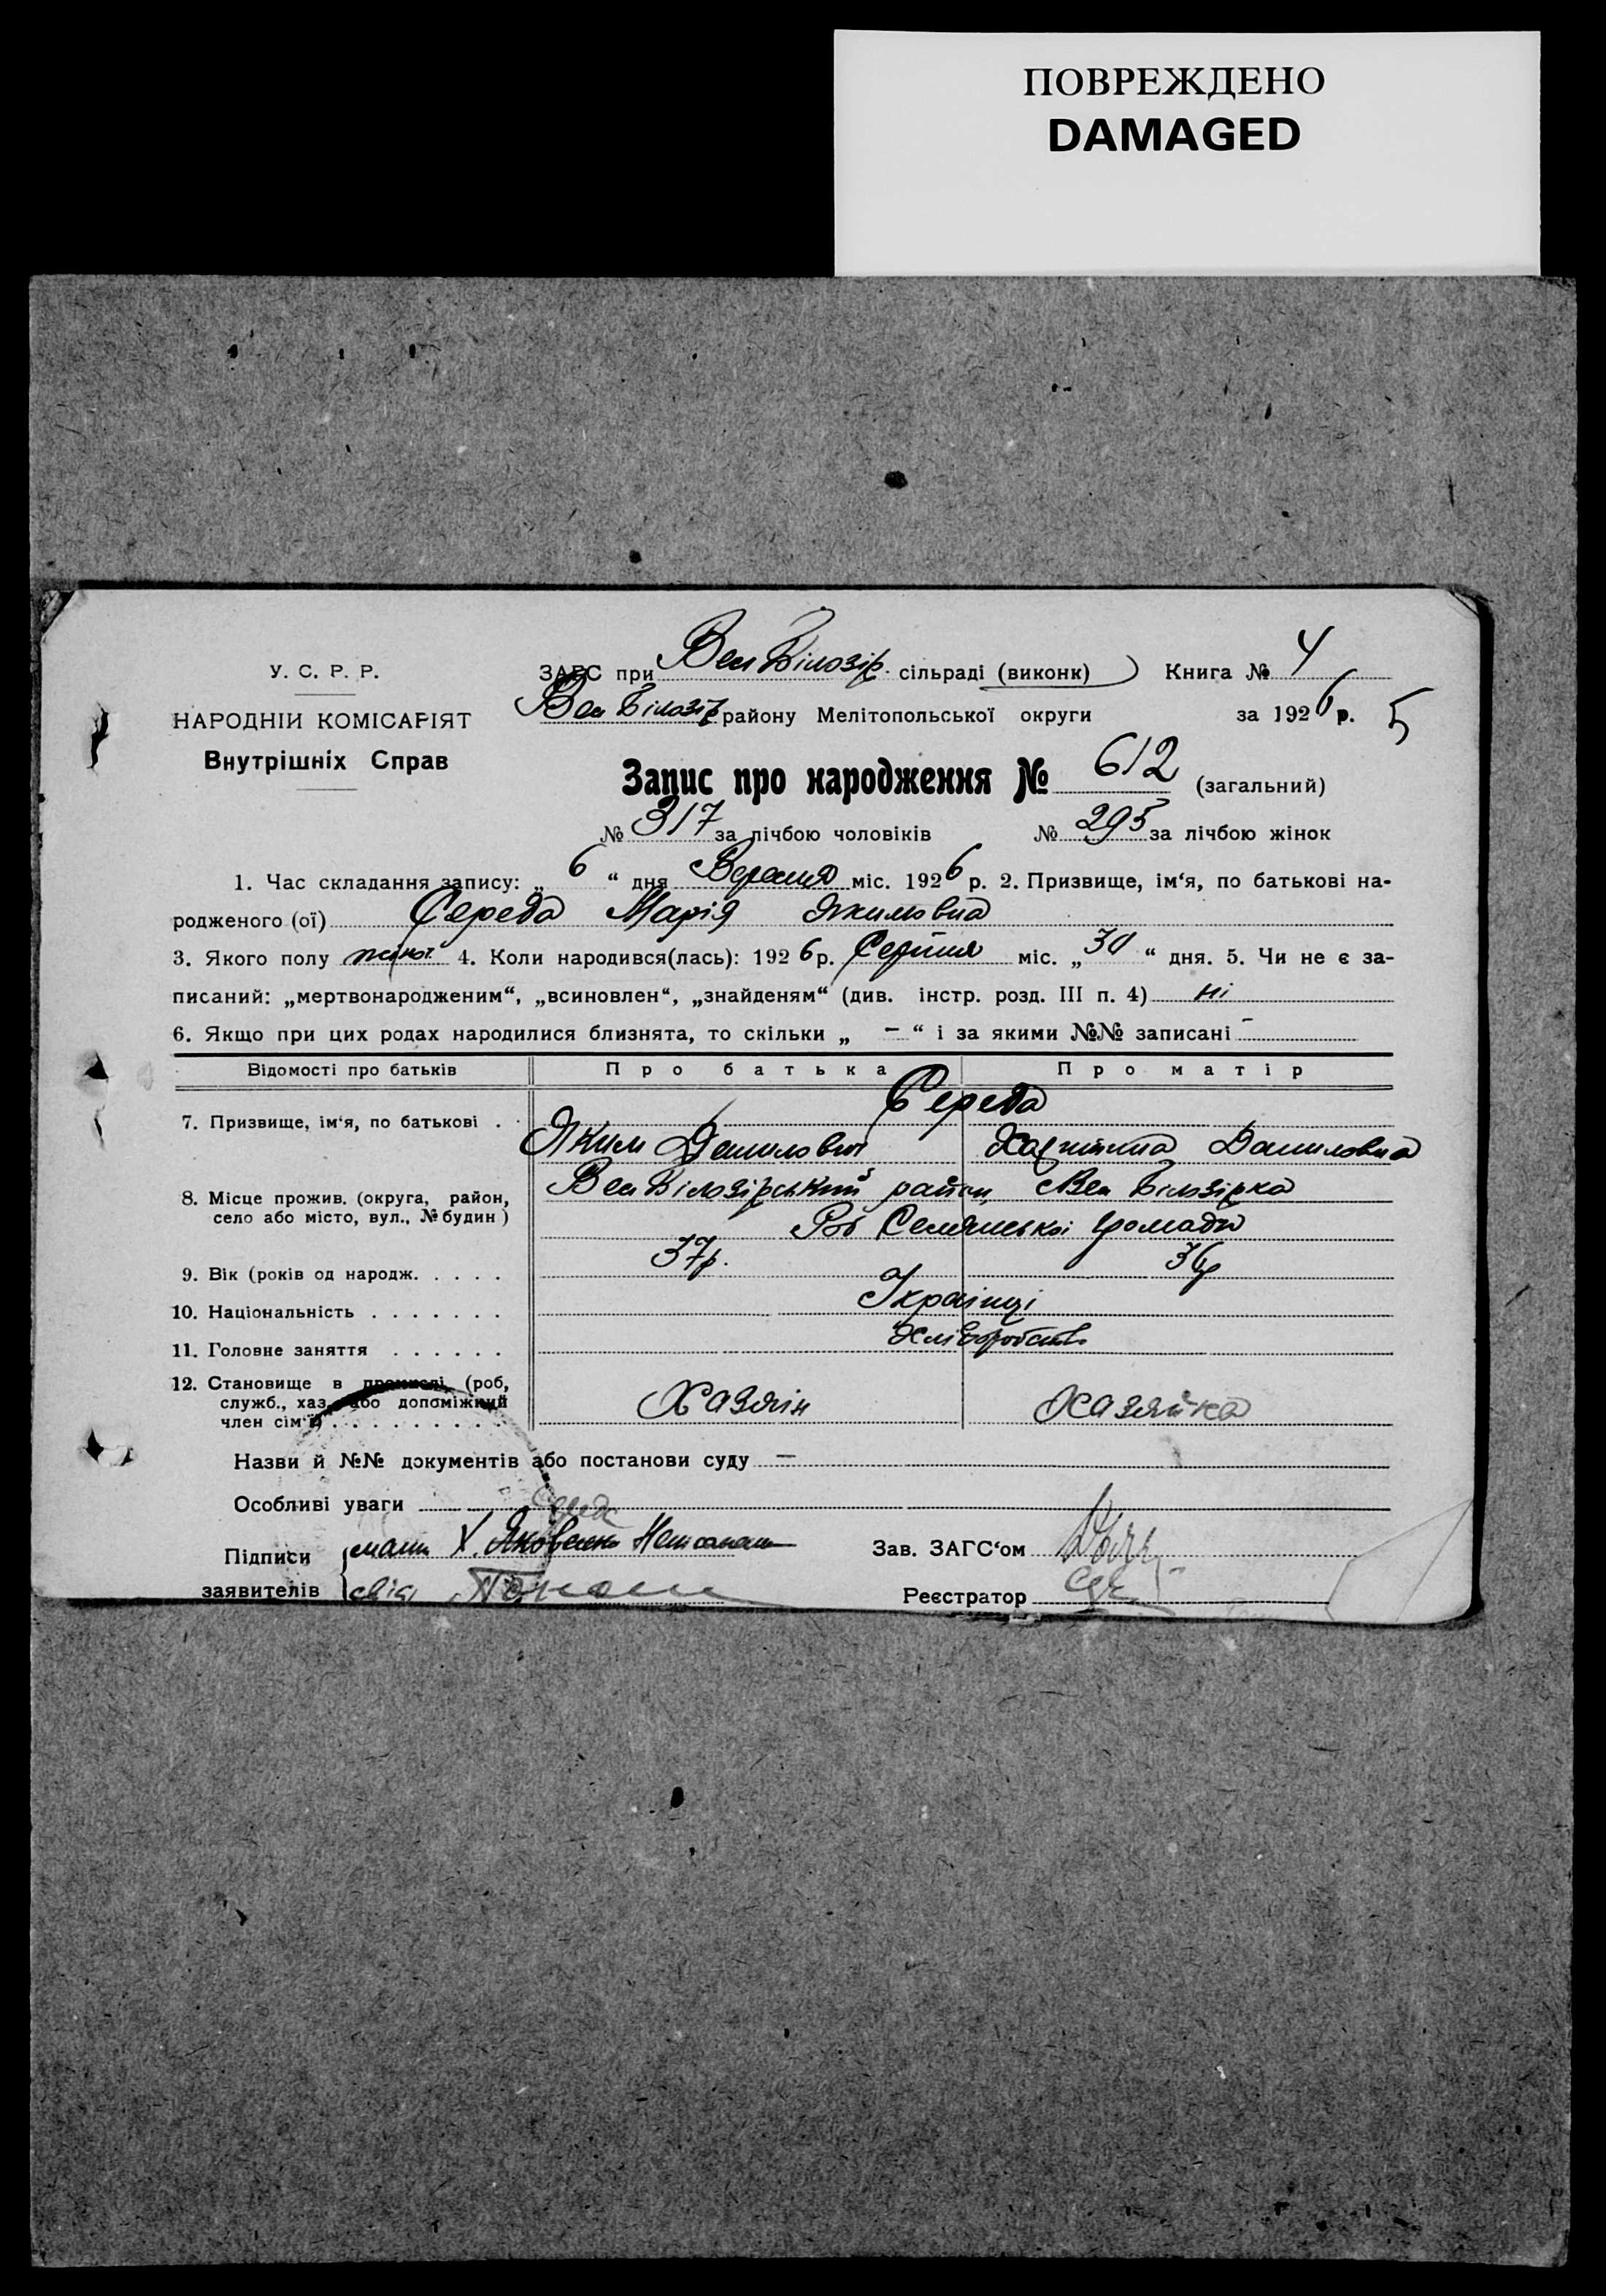 ПОВРЕЖДЕНО
DAMAGED
У. С. Р. Р.
НАРОДНІЙ КОМІСАРІЯТ
Внутрішніх Справ
ЗАГС при Вел Білозір. сільраді (виконк) Книга № 4
Вел Білозір району Мелітопольської округи за 1926 р. 5
Запис про народження № 612 (загальний)
№ 317 за лічбою чоловіків № 295 за лічбою жінок
1. Час складання запису: „ 6 “ дня Вересня міс. 1926 р. 2. Призвище, ім‘я, по батькові на-
родженого (ої) Середа Марія Якимовна
3. Якого полу жіноі 4. Коли народився(лась): 1926 р. Серпня міс. „ 30 “ дня. 5. Чи не є за-
писаний: „мертвонародженим“, „всиновлен“, „знайденям“ (див. інстр. розд. III п. 4) ні
6. Якщо при цих родах народилися близнята, то скільки „ – “ і за якими №№ записані –
Відомості про батьків Про батька Про матір
Середа
7. Призвище, ім‘я, по батькові . .
Яким Данилович Харитина Даниловна
8. Місце прожив. (округа, район,
село або місто, вул., № будин)
Вел Білозірський район Вел Білозірка
Селянської громади
9. Вік (років од народж. . . . . 37 р.
10. Національність . . . . . . . Українці
11. Головне заняття . . . . . . Хліборобств
12. Становище в промислі (роб,
служб., хаз. або допоміжний
член сім‘ї) . . . . . . . . . Хазяін Хазяйка
Назви й №№ документів або постанови суду –
Особливі уваги
Підписи
заявителів
Х. Яковенко
Зав. ЗАГС‘ом
Реєстратор